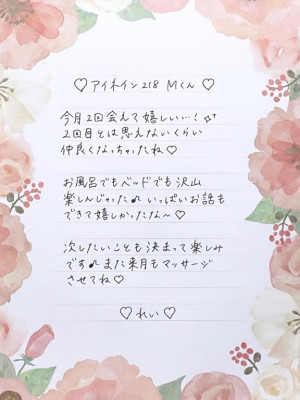 ♡アイネイン218 Mくん♡
今月2回会えて嬉しい…!✨
2回目とは思えないくらい
仲良くなっちゃったね♡
お風呂でもベッドでも沢山
楽しんじゃった♪いっぱいお話も
できて嬉しかったな〜♡
次したいことも決まって楽しみ
です♪また来月もマッサージ
させてね♡
♡れい♡